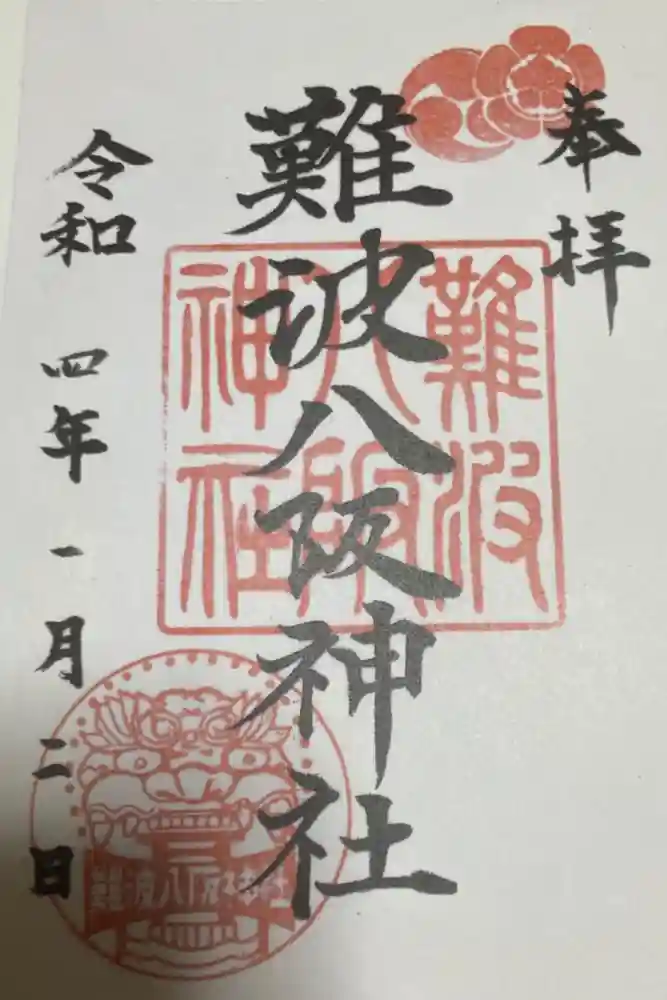 奉拝
難波八阪神社
難波
八阪
神社
令和四年一月二日
難波八阪神社